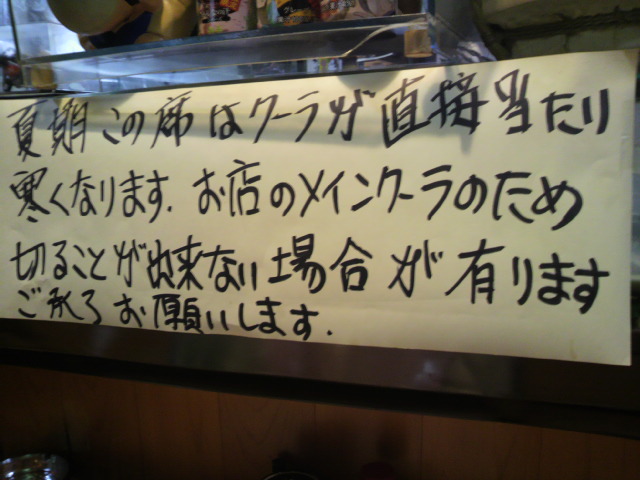 夏期この席はクーラが直接当たり
寒くなります. お店のメインクーラのため
切ることが出来ない場合が有ります
ご承了お願いします.